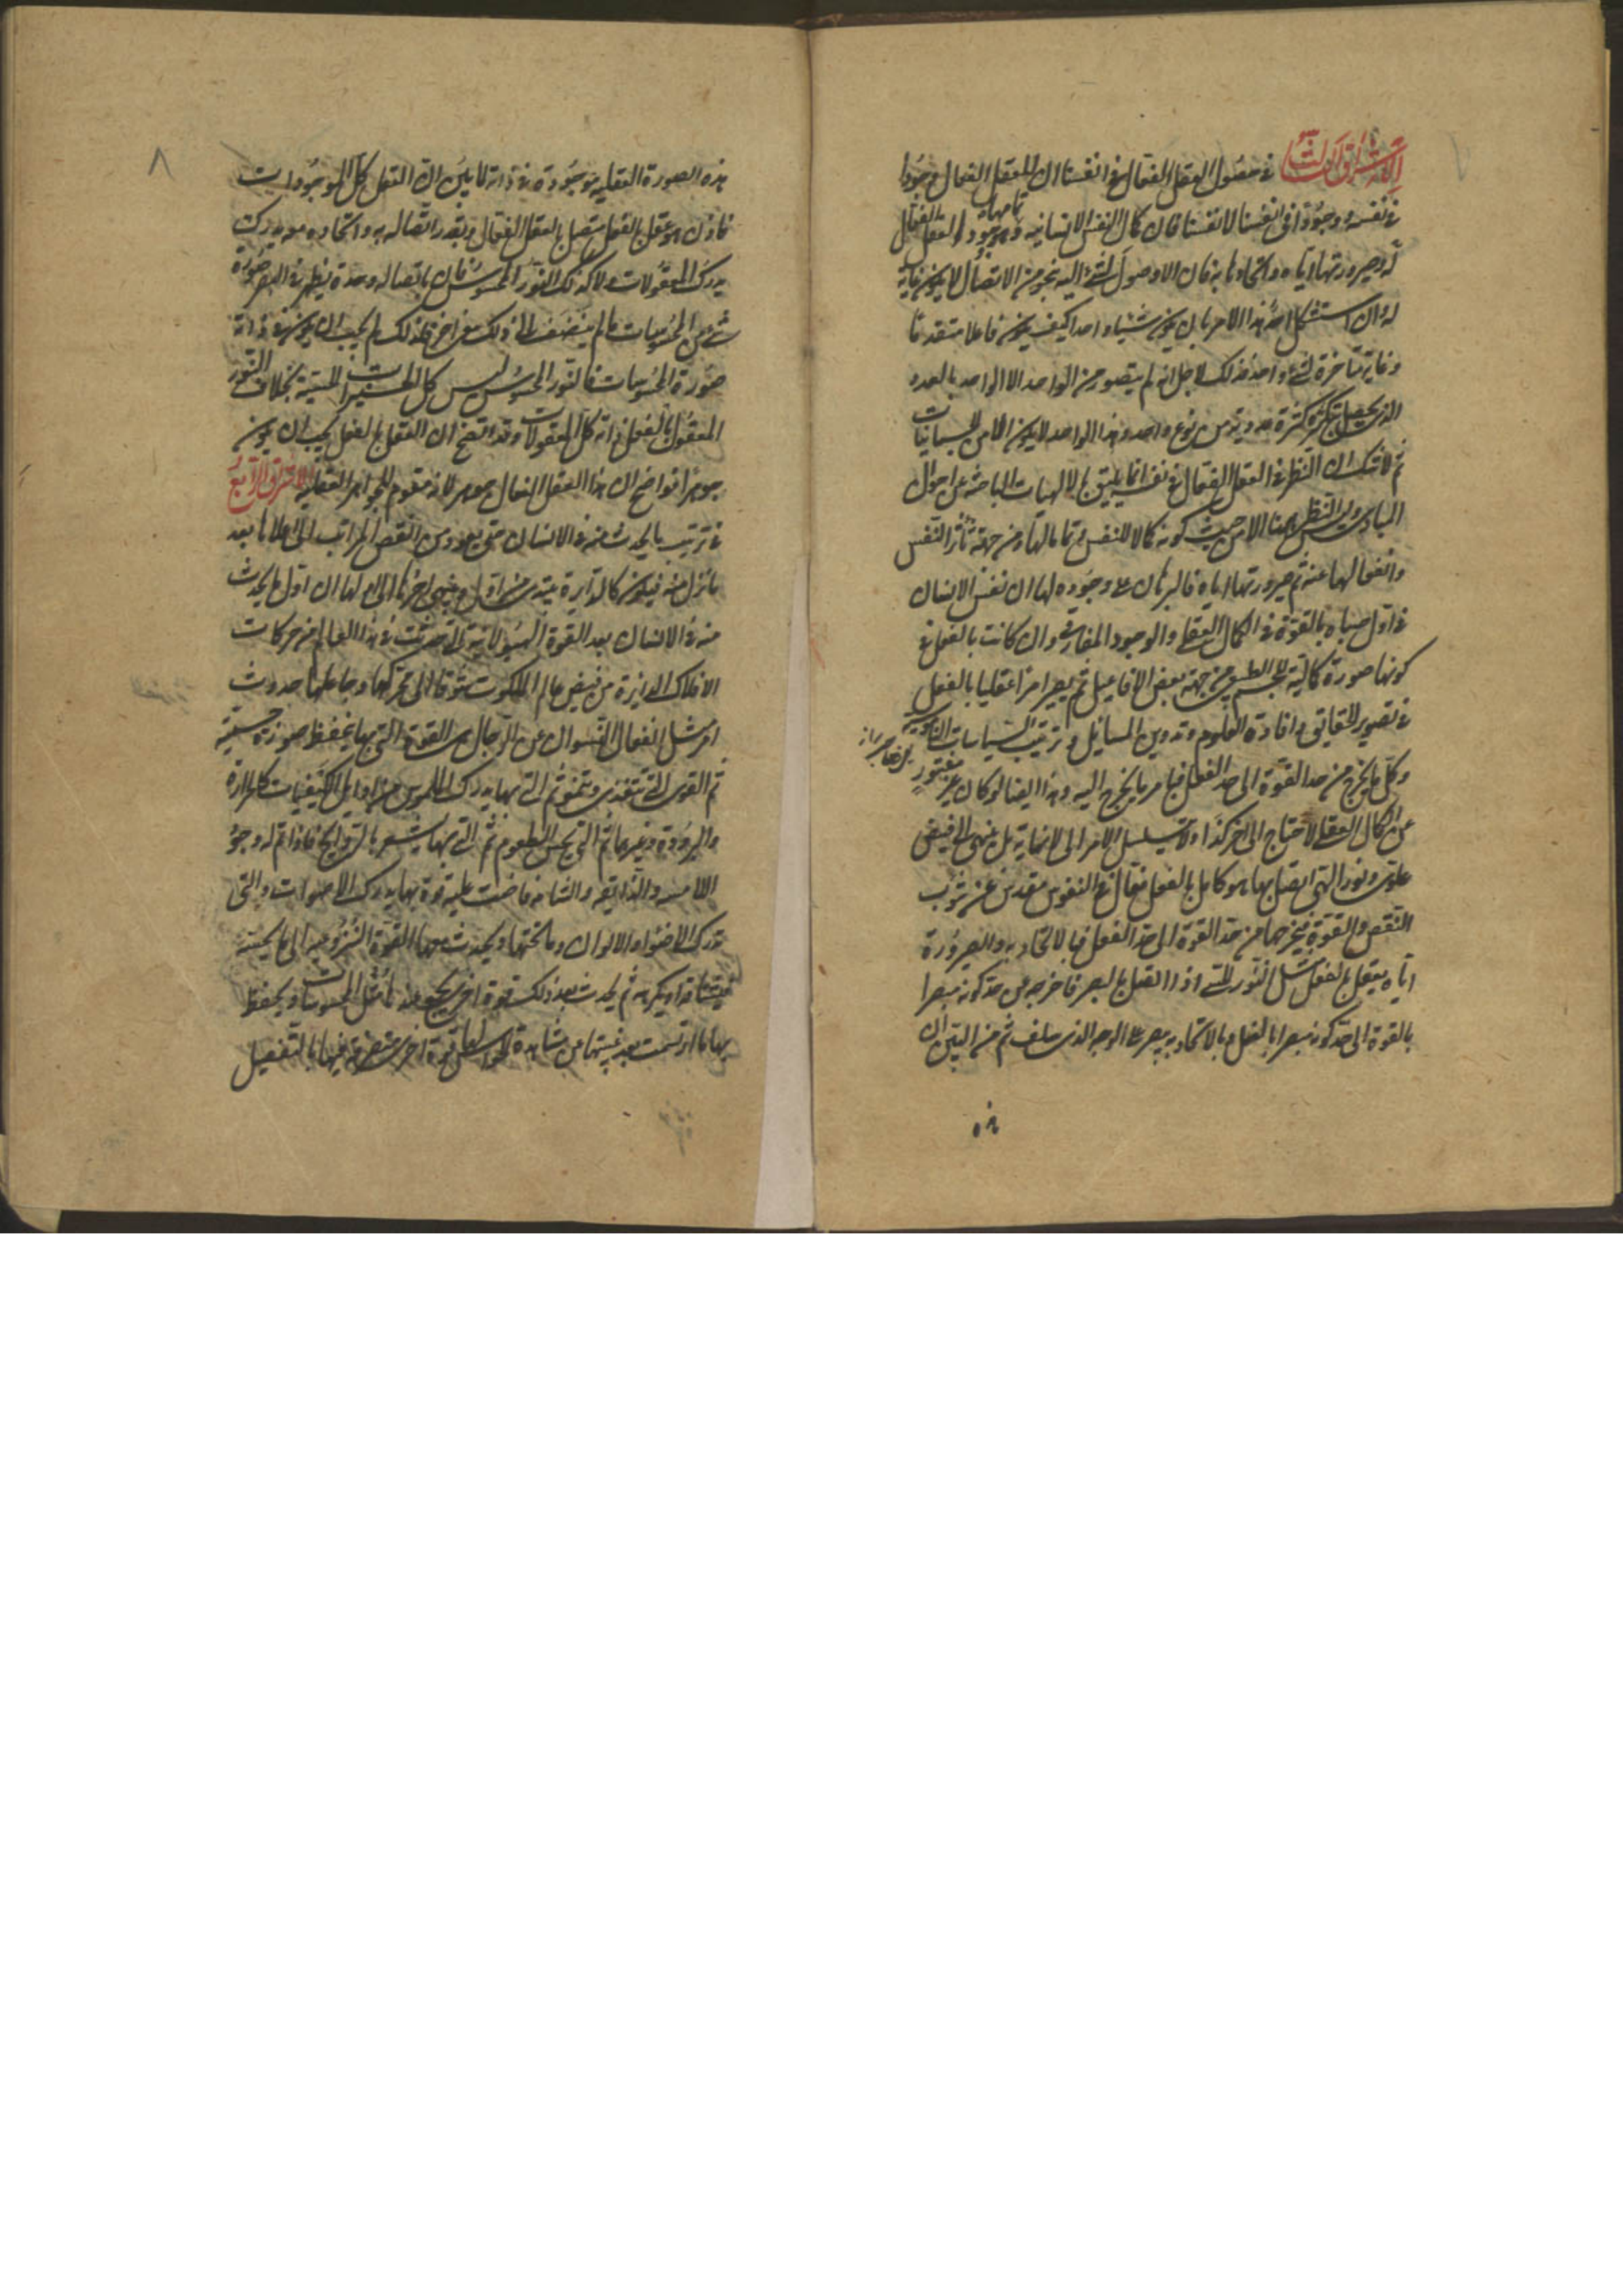 الاشراق الثالث في حصول العقل الفعال في انفسنا ان للعقل الفعال وجودا
في نفسه ووجودا في انفسنا لانفسنا فان كمال النفس الانسانية وتمامها هو وجود العقل الفعال
له وصيرورتها اياه واتحادها به فان ما لا وصول لشيء اليه بنحو من الاتصال لا يكون غاية
له وان استشكل احد هذا الامر بان يكون شيئا واحدا كيف يكون فاعلا متقدما
وغاية متاخرة لشيء واحد فذلك لاجل انه لم يتصور من الواحد الا الواحد بالعدد
الذي يحصل بتكرره كثرة عددية من نوع واحد وهذا الواحد لا يكون الا من الجسمانيات
ثم لا شك ان النظر في العقل الفعال في نفسه انما يليق بالالهيات الباحثة عن احوال
المبادي وليس النظر ههنا الا من حيث كونه كمالا للنفس وتماما لها ومن جهة تاثر النفس
وانفعالها عنه ثم صيرورتها اياه فالبرهان على وجوده لها ان نفس الانسان
في اول صباه بالقوة في الكمال العقلي والوجود المفارقي وان كانت بالفعل في
كونها صورة كمالية للجسم الطبيعي من جهة بعض الافاعيل ثم يصير امرا عقليا بالفعل
في تصوير الحقايق وافادة العلوم وتدوين المسايل وترتيب السياسات
وكل ما يخرج من حد القوة الى حد الفعل فبامر ما يخرج اليه وهذا ايضا لو كان غير
عن الكمال العقلي لاحتاج الى اخر كذا ولا يتسلسل الامر الى لا نهاية بل ينتهي الى فيض
علوي ونور الهي اتصل بها ما هو كامل بالفعل فعال في النفوس مقدس عن شوب
النقص والقوة فيخرجها من حد القوة الى حد الفعل فبالاتحاد به والصيرورة
اياه يعقل بالفعل مثل النور الحسي اذا اتصل بالبصر فاخرجه من حد كونه مبصرا
بالقوة الى حد كونه مبصرا بالفعل وبالاتحاد به يبصر على الوجه الذي سلف ثم من البين ان
هذه
٨
هذه الصورة العقلية موجودة في ذاته لا بين ان العقل كل الموجودات
فاذن هو عقل بالفعل متصل بالعقل الفعال وبقدر اتصاله به واتحاده معه يدرك
يدرك المعقولات ولا كذلك النور المحسوس فان باتصاله وحده يظهر في البصر صورة
شيء من المحسوسات ما لم ينضف الى ذلك شيء اخر فلذلك لم يجب ان يكون في ذاته
صورة المحسوسات فالنور المحسوس ليس كل الحسية بخلاف النور
المعقول بالفعل فانه كل المعقولات وقد اتضح ان العقل بالفعل يجب ان يكون
جوهرا فواضح ان هذا العقل الفعال جوهر لانه مقوم للجواهر العقلية الاشراق الرابع
في ترتيب ما يحدث منه في الانسان حتى يعود من انقص المراتب الى اعلاها بعد
ما نزل منه فيكون كالدايرة يبتدي من اول وينتهي اخرها الى اولها ان اول ما يحدث
منه في الانسان بعد القوة الهيولانية التي حدثت في هذا العالم من حركات
الافلاك الدايرة من فيض عالم الملكوت شوقا الى محركها وجاعلها حدوث
امر مثل انفعال النسوان عن الرجال هي القوة التي بها يحفظ صورة جسمية
ثم القوى التي تتغذى وتنمو ثم التي بها يدرك الملموس من اوايل الكيفيات كالحرارة
والبرودة وغيرهما ثم التي يحس الطعوم ثم التي بها يشعر بالروايح فاذا تم له وجود
اللامسة والذايقة والشامة فاضت عليه قوة بها يدرك الاصوات والتي
تدرك الاضواء والالوان وما تحتها ويحدث معها القوة النزوعية الى ما يحسه
فيشتاقه او يكرهه ثم يحدث بعد ذلك قوة اخرى يجتمع عنده مثل المحسوسات ويحفظ
بها ما ارتسمت بعد غيبتها عن مشاهدة الحواس لها قوة اخرى متصرفة فيها بالتفصيل